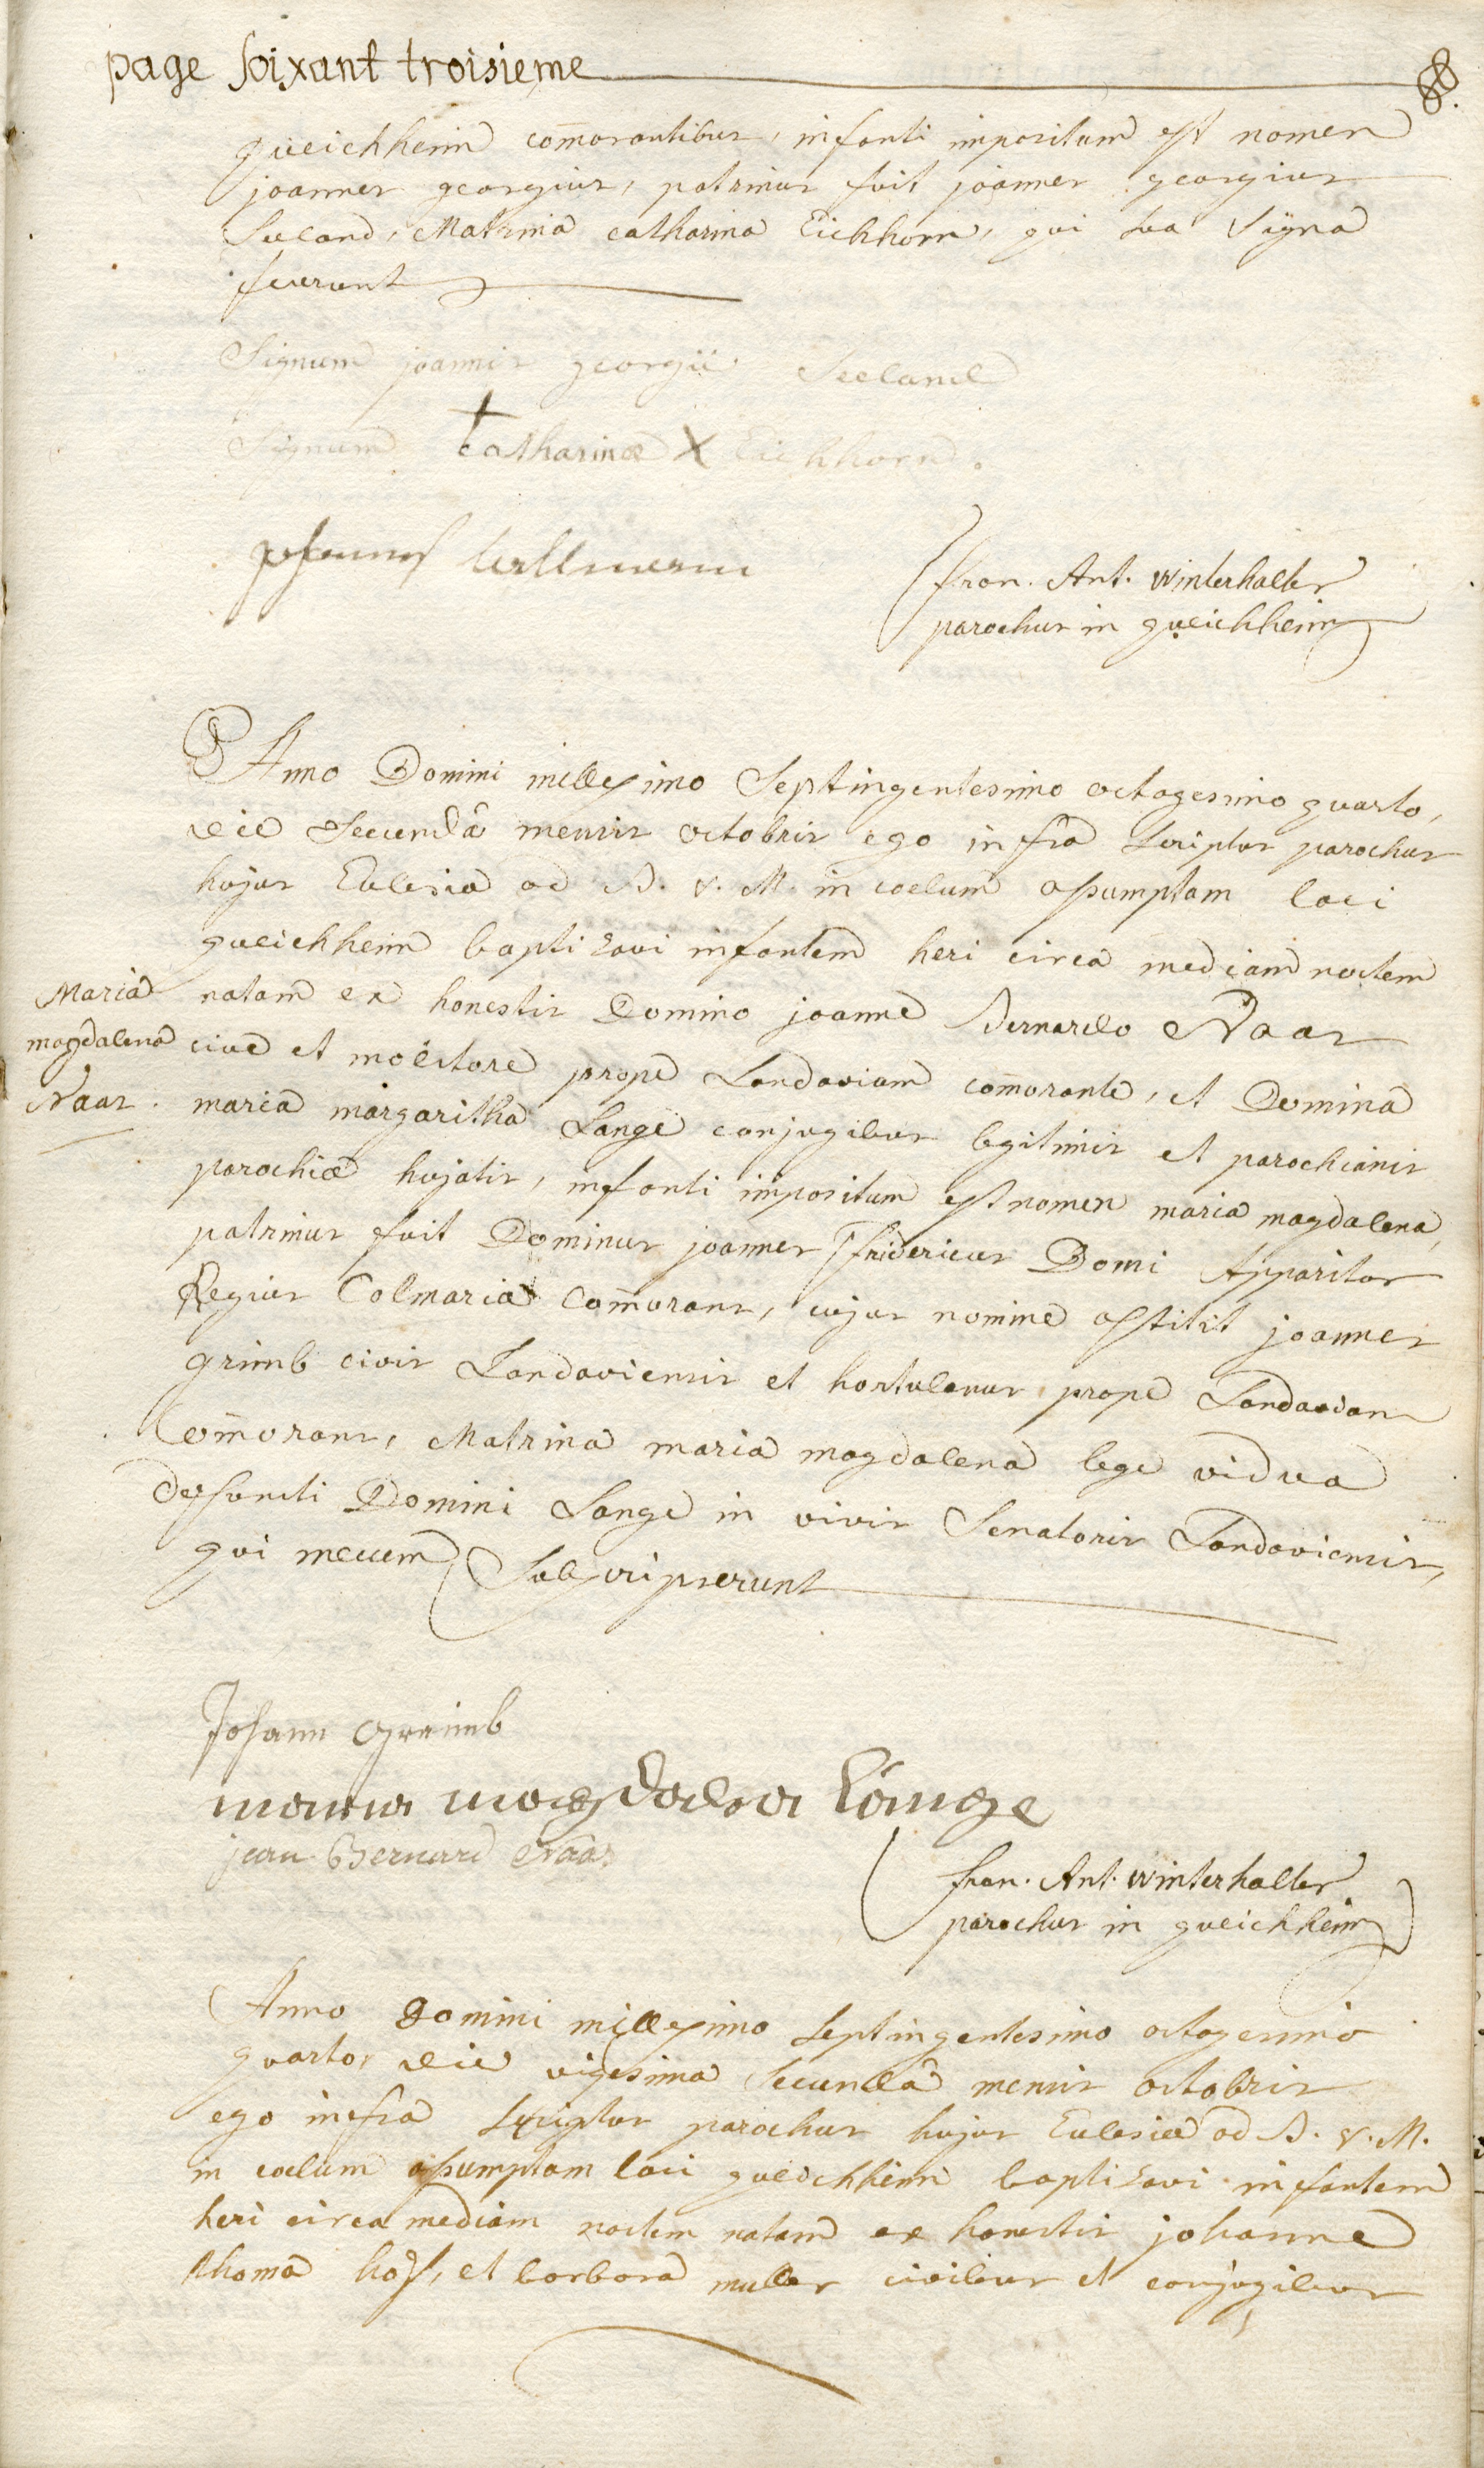 page soixant troisieme
queichheim com̄orantibus, infanti impositum est nomen
joannes georgius, patrinus fuit joannes georgius
Seeland, Matrina catharina Eichhorn, qui sua signa
fecerunt
Signum joannis georgii Seeland
Signum catharinæ X Eichhorn.
fran. Ant. Winterhalter
parochus in queichheim
Anno Domini millesimo Septingentesimo octogesimo quarto,
die secundâ mensis octobris ego infra scriptus parochus
hujus Eclesiæ ad B. V. M. in coelum assumptam loci
queichheim baptizavi infantem heri circa mediam noctem
Maria
magdalena
Naar.
natam ex honestis Domino joanne Bernardo Naar
cive et molitore prope Landaviam com̄orante, et Domina
maria margaritha Lange conjugibus legitimis et parochianis
parochiæ hujatis, infanti impositum est nomen maria magdalena,
patrinus fuit Dominus joannes fridericus Domi Apparitor
Regius Colmariæ com̄orans, cujus nomine astitit joannes
grimb civis Landaviensis et hortulanus prope Landaviam
com̄orans, Matrina maria magdalena lege vidua
defuncti Domini Lange in vivis Senatoris Landaviensis,
qui mecum Subscripserunt
Johann Grimb
maria magdalea Länge
jean Bernard Naar
fran. Ant. Winterhalter
parochus in queichheim
Anno Domini millesimo septingentesimo octogesimo
quarto, die vigesima secunda mensis octobris
ego infra scriptus parochus hujus Eclesiæ ad B. V. M.
in coelum assumptam loci queichheim baptizavi infantem
heri circa mediam noctem natam ex honestis johanne
thoma hoss, et barbara muller civibus et conjugibus